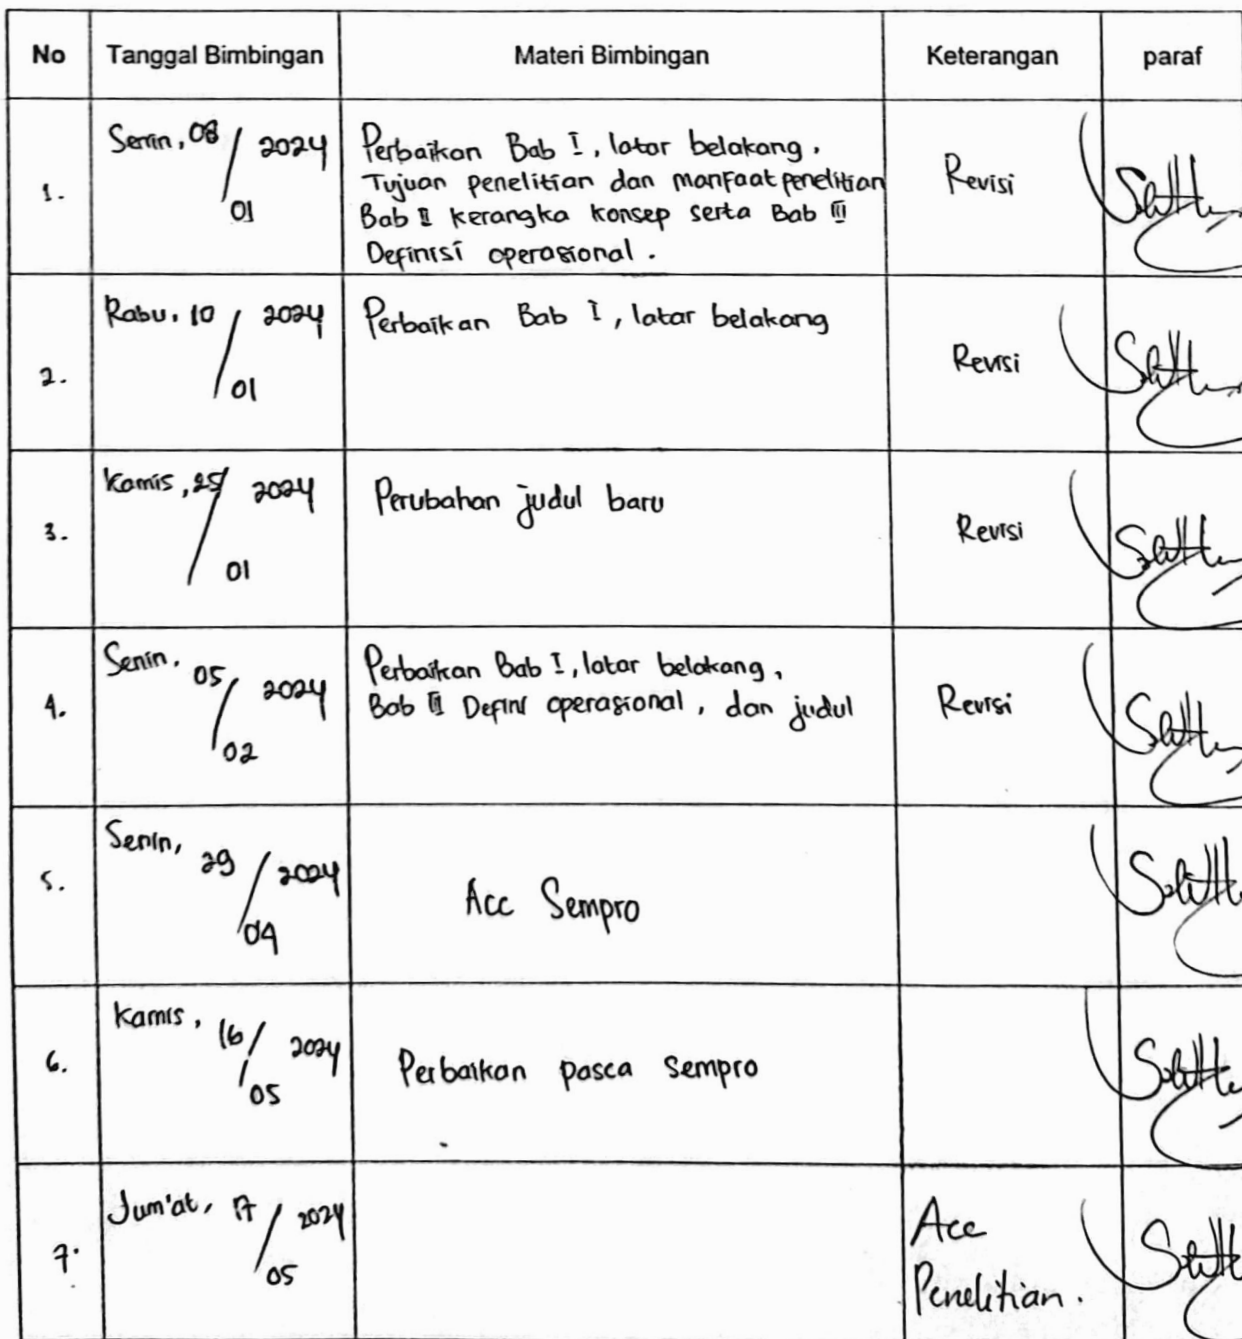 No Tanggal Bimbingan Materi Bimbingan Keterangan paraf
1. Senin, 08/01 2024 Perbaikan Bab I, latar belakang, Revisi
Tujuan penelitian dan manfaat penelitian
Bab II kerangka konsep serta Bab III
Definisi operasional.
2. Rabu, 10/01 2024 Perbaikan Bab I, latar belakang Revisi
3. Kamis, 25/01 2024 Perubahan judul baru Revisi
4. Senin, 05/02 2024 Perbaikan Bab I, latar belakang, Revisi
Bab III Defini operasional, dan judul
5. Senin, 29/04 2024 Acc Sempro
6. Kamis, 16/05 2024 Perbaikan pasca sempro
7. Jum'at, 17/05 2024 Acc
Penelitian.